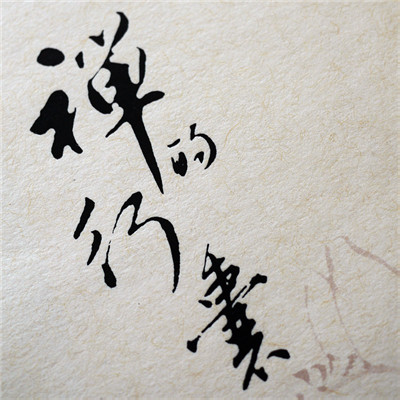 禅的行囊